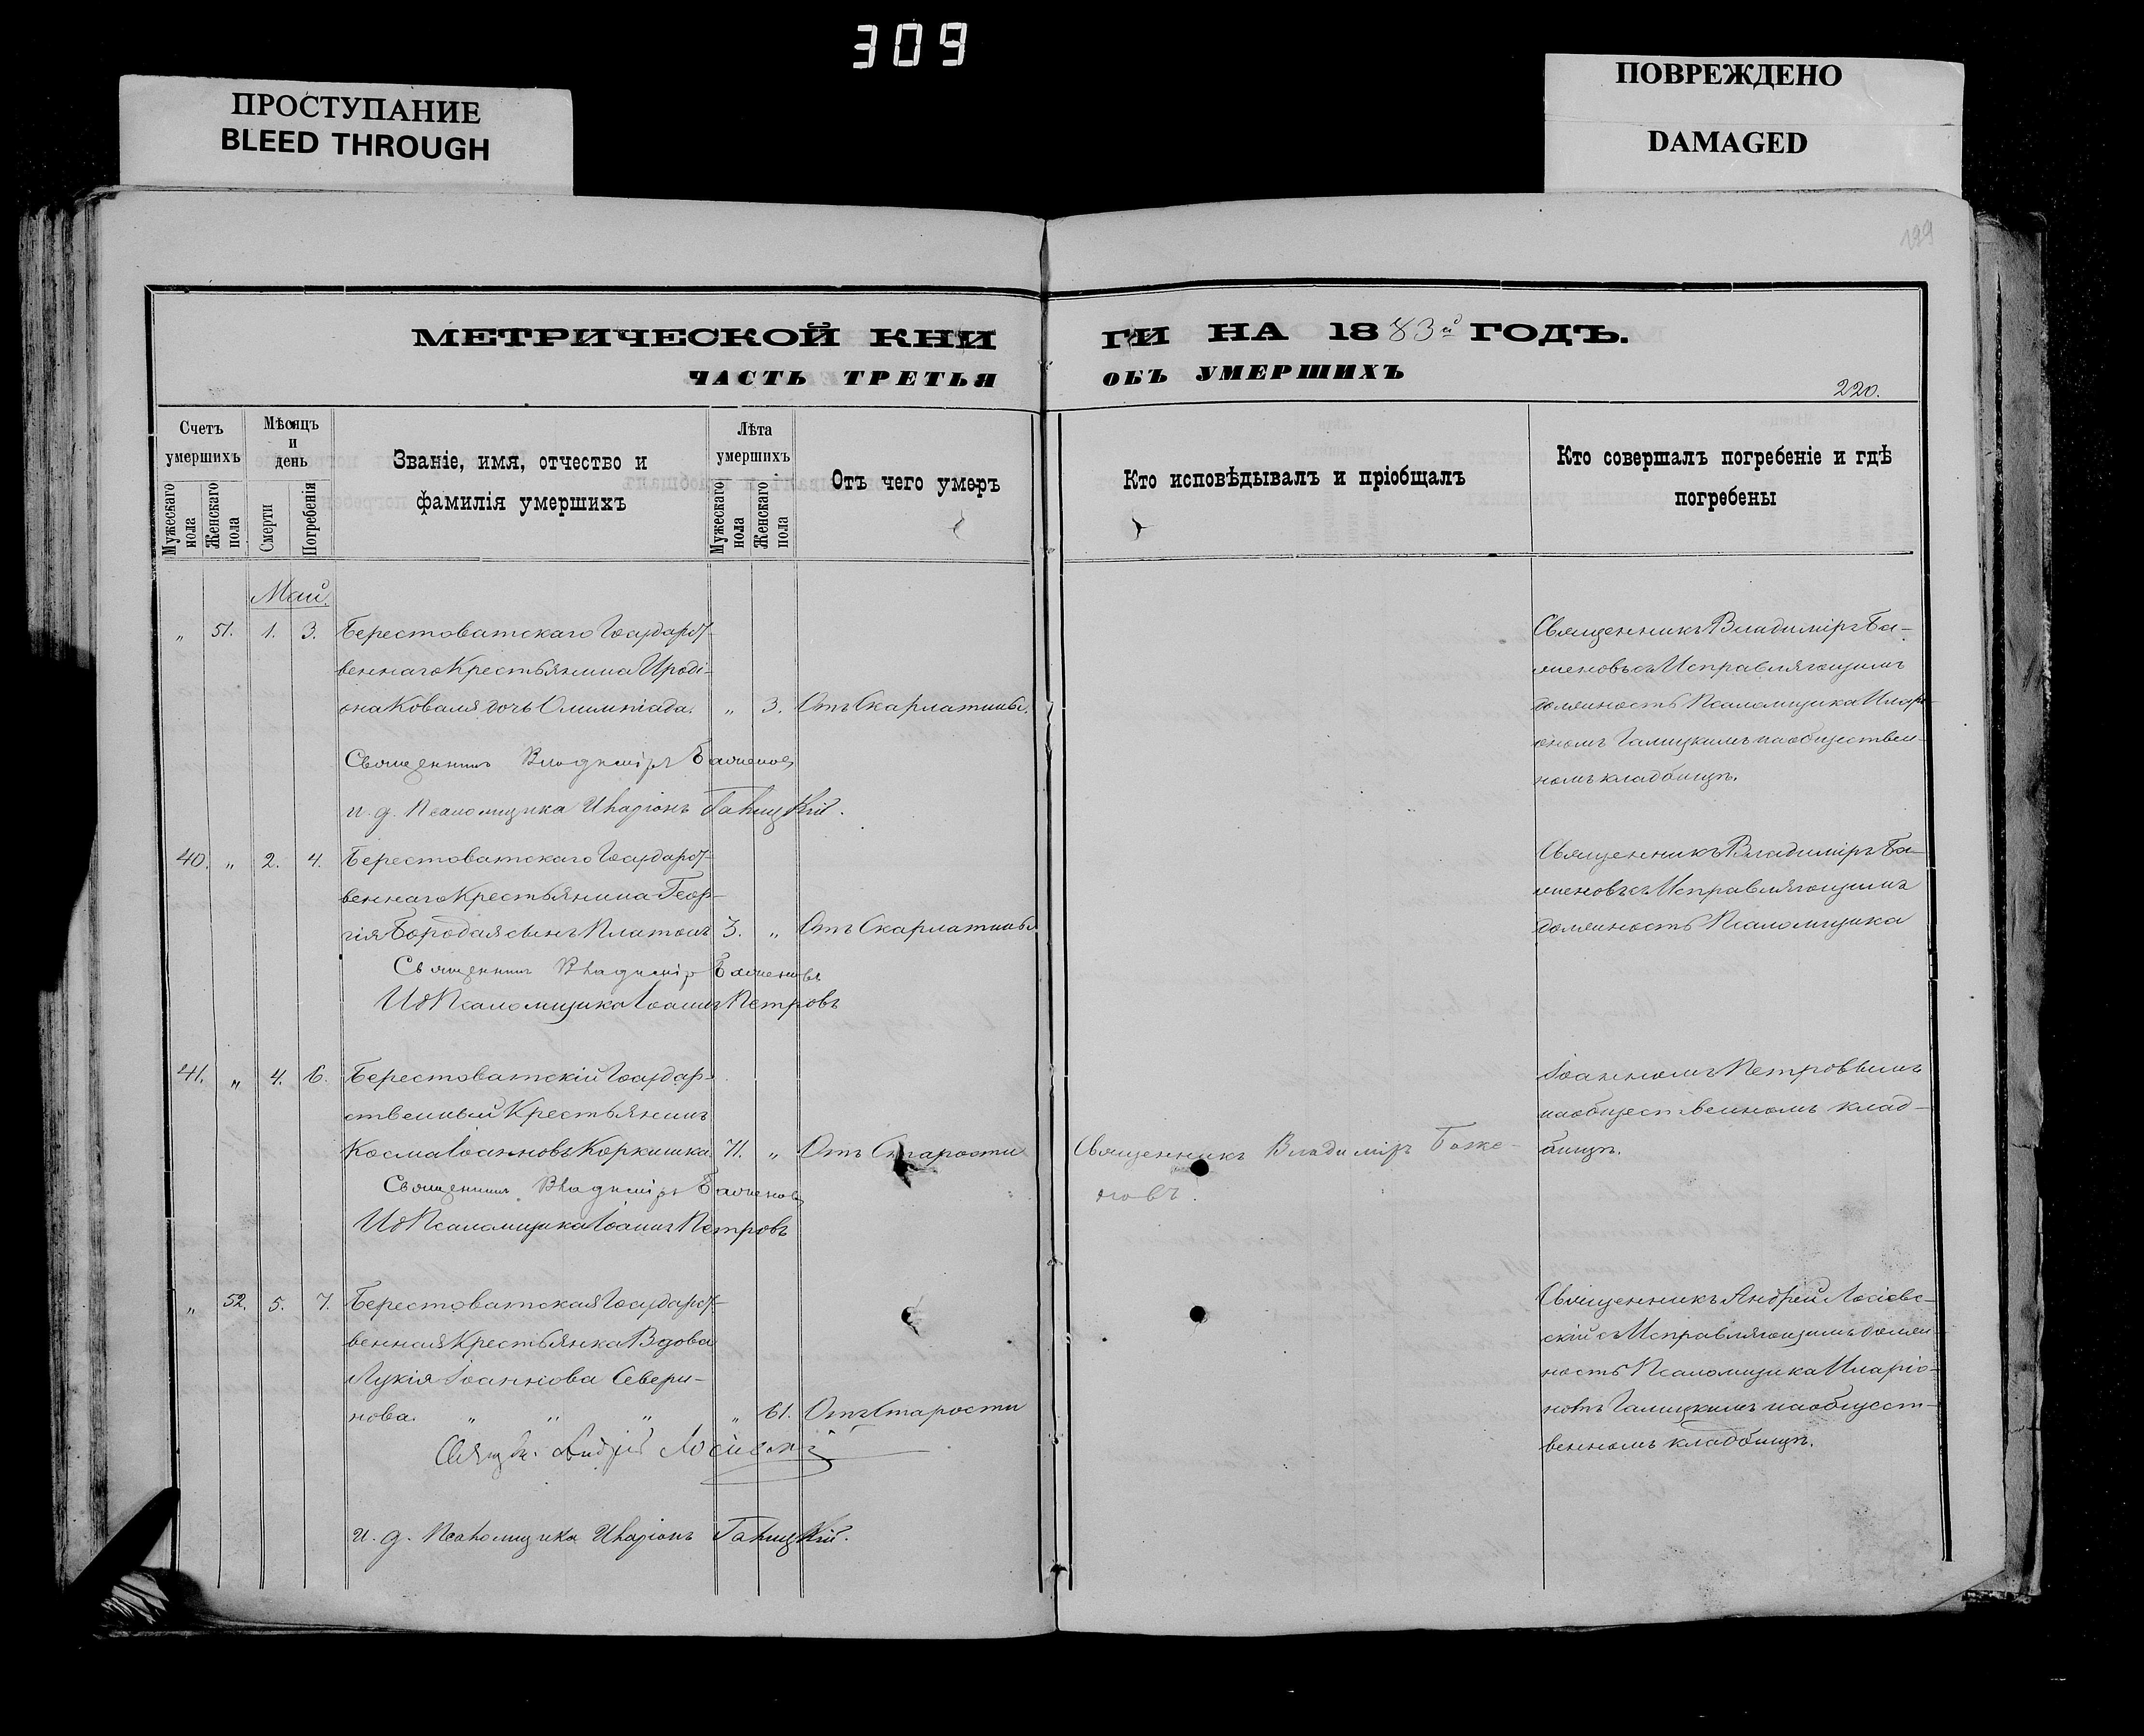 309
ПРОСТУПАНИЕ
BLEED THROUGH
ПОВРЕЖДЕНО
DAMAGED
199
МЕТРИЧЕСКОЙ КНИ
ГИ НА 1883й ГОДЪ.
ЧАСТЬ ТРЕТЬЯ
ОБЪ УМЕРШИХЪ
220.
Счетъ умершихъ
Мужескаго пола
Женскаго пола
Мѣсяцъ и день
Смерти
Погребенія
Званіе, имя, отчество и
фамилія умершихъ
Лѣта умершихъ
Мужескаго пола
Женскаго пола
Отъ чего умеръ
Кто исповѣдывалъ и пріобщалъ
Кто совершалъ погребеніе и гдѣ
погребены
Май.
„ 51. 1. 3. Берестоватскаго Государст-
веннаго Крестьянина Ироді-
она Коваля дочь Олимпіада. „ 3. Отъ Скарлатины.
Священникъ Владиміръ Баженовъ
и. д. Псаломщика Иларіонъ Галицкій.
Священникъ Владиміръ Ба-
женовъ съ Исправляющимъ
должность Псаломщика Илари-
ономъ Галицкимъ на обществен-
номъ кладбищѣ.
40. „ 2. 4. Берестоватскаго Государст-
веннаго Крестьянина Геор-
гія Бородая сынъ Платонъ 3. „ Отъ Скарлатины
Священникъ Владиміръ Баженовъ
ИД Псаломщика Іоаннъ Петровъ
Священникъ Владиміръ Ба-
женовъ съ Исправляющимъ
должность Псаломщика
41. „ 4. 6. Берестоватскій Государ-
ственный Крестьянинъ
Косма Іоанновъ Коркишка 71. „ Отъ Старости
Священникъ Владиміръ Баженовъ
ИД Псаломщика Іоаннъ Петровъ
Священникъ Владиміръ Баже-
новъ.
Іоанномъ Петровымъ
на общественномъ клад-
бищѣ.
„ 52. 5. 7. Берестоватская Государст-
венная Крестьянка Вдова
Лукія Іоаннова Севери-
нова. „ „ „ „ 61. Отъ Старости
Свящ. Андрей Лосіевскій
и. д. Псаломщика Иларіонъ Галицкій.
Священникъ Андрей Лосіевс-
скій съ Исправляющимъ долж-
ность Псаломщика Иларіо-
номъ Галицкимъ на общест-
венномъ кладбищѣ.